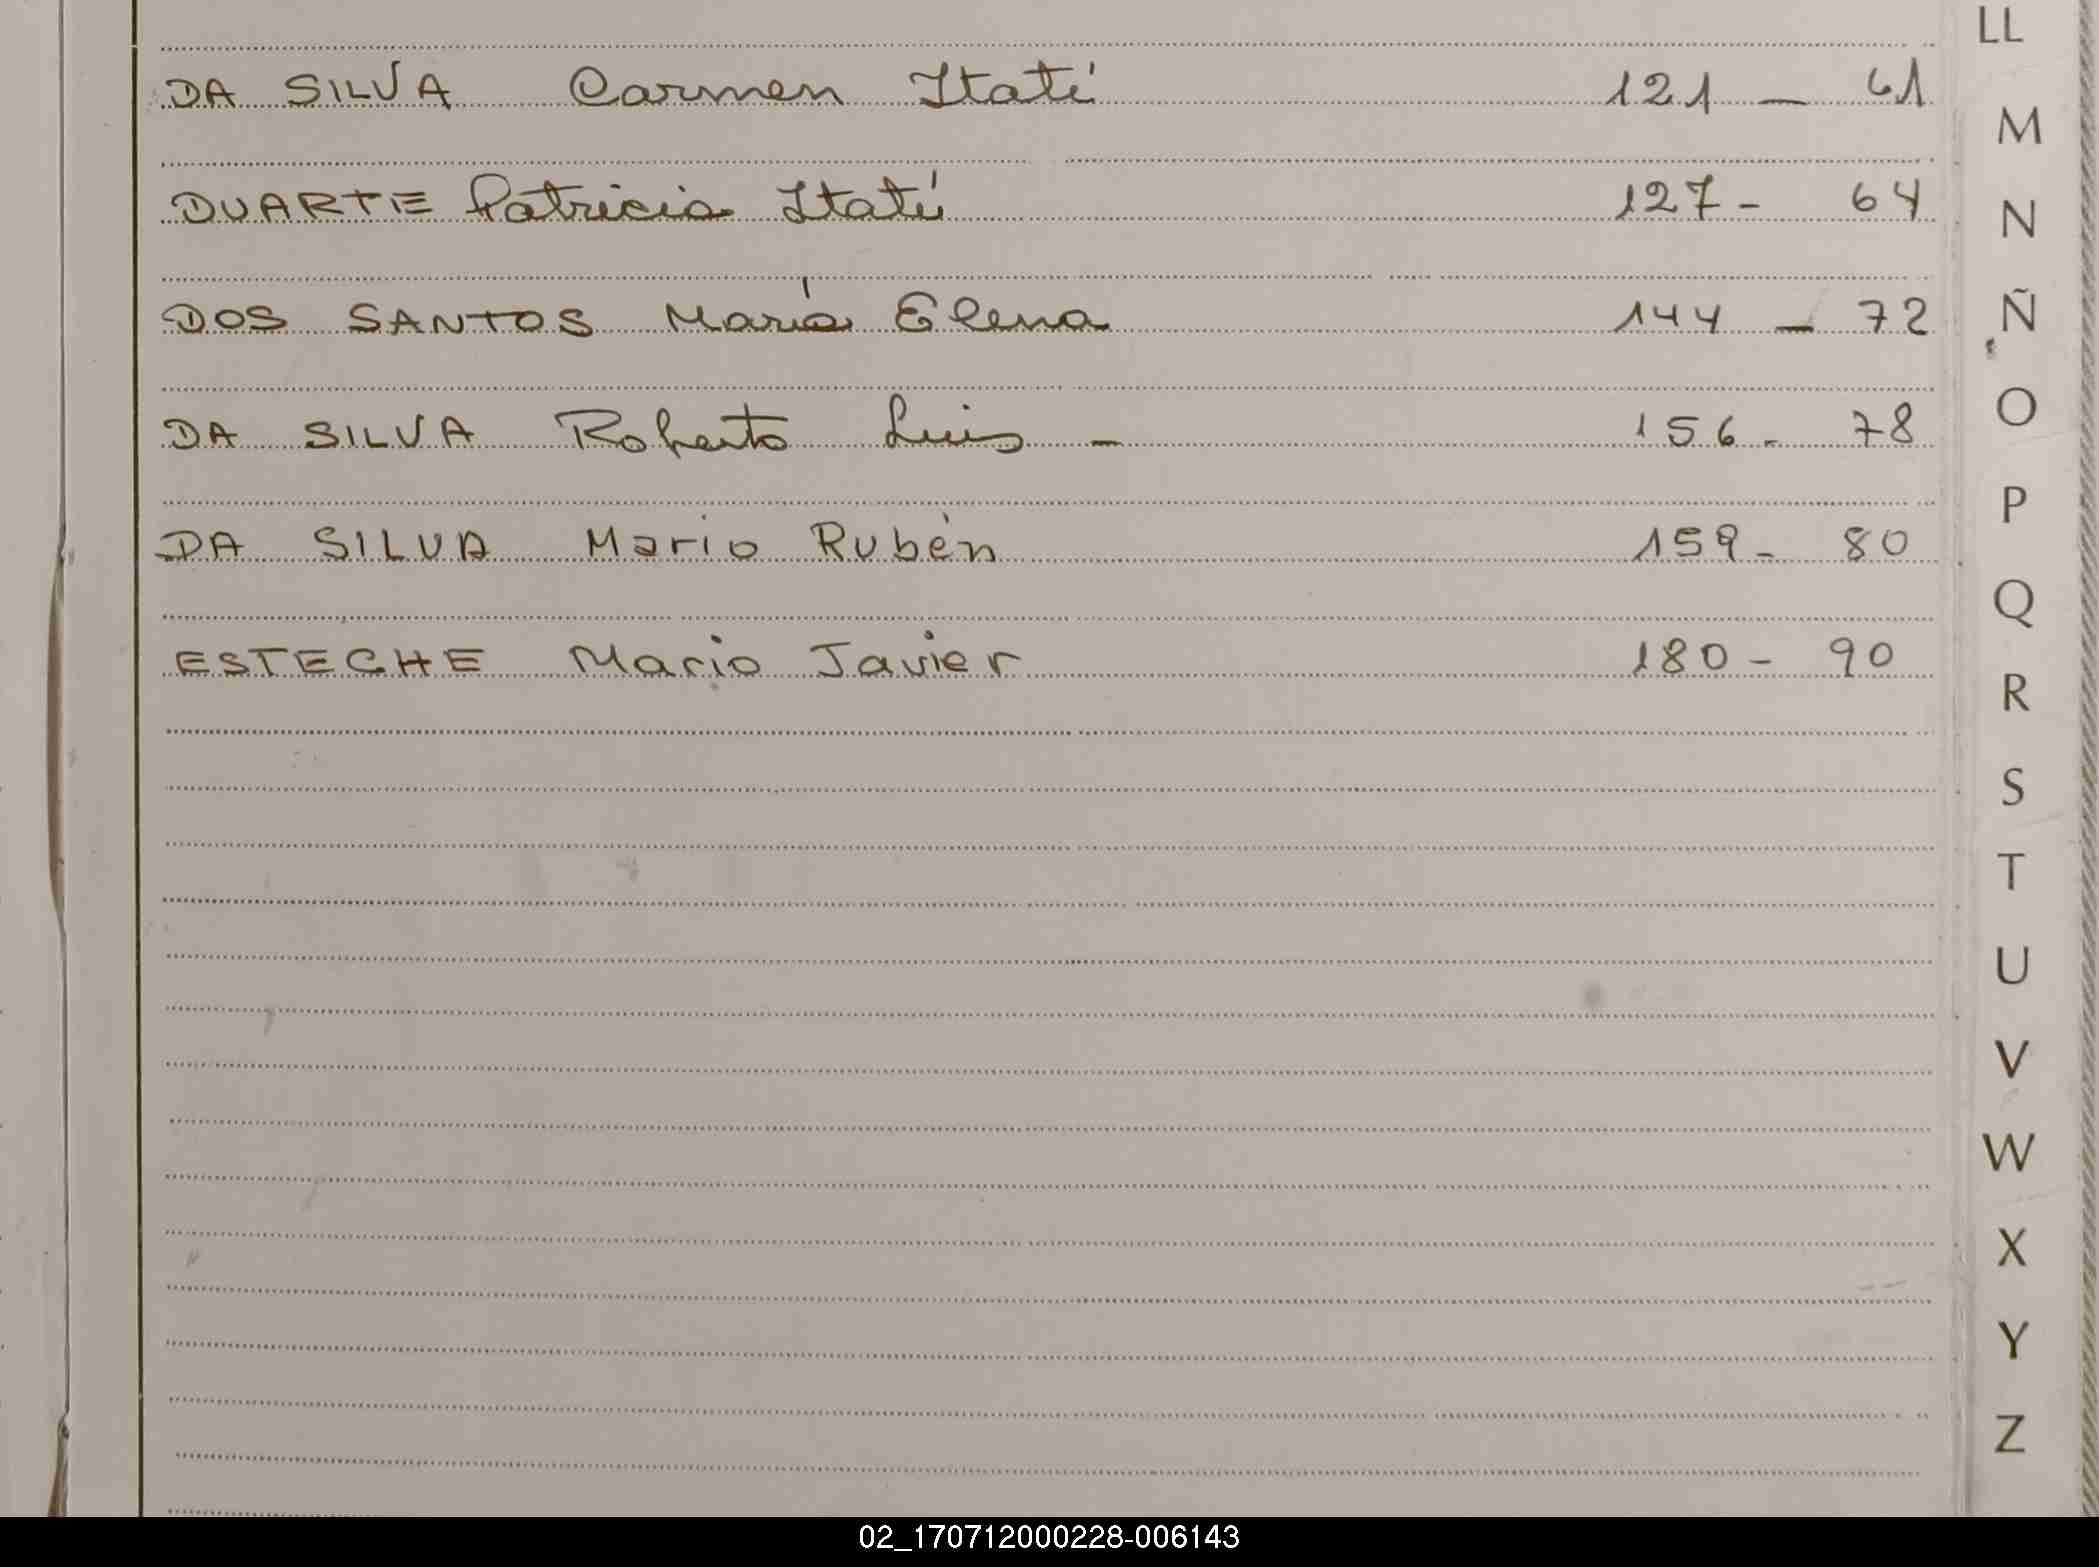 DA SILVA Carmen Itatí 121 - 61
DUARTE Patricia Itatí 127 - 64
DOS SANTOS María Elena 144 - 72
DA SILVA Roberto Luis - 156 - 78
DA SILVA Mario Rubén 159 - 80
ESTECHE Mario Javier 180 - 90
LL
M
N
Ñ
O
P
Q
R
S
T
U
V
W
X
Y
Z
02_170712000228-006143